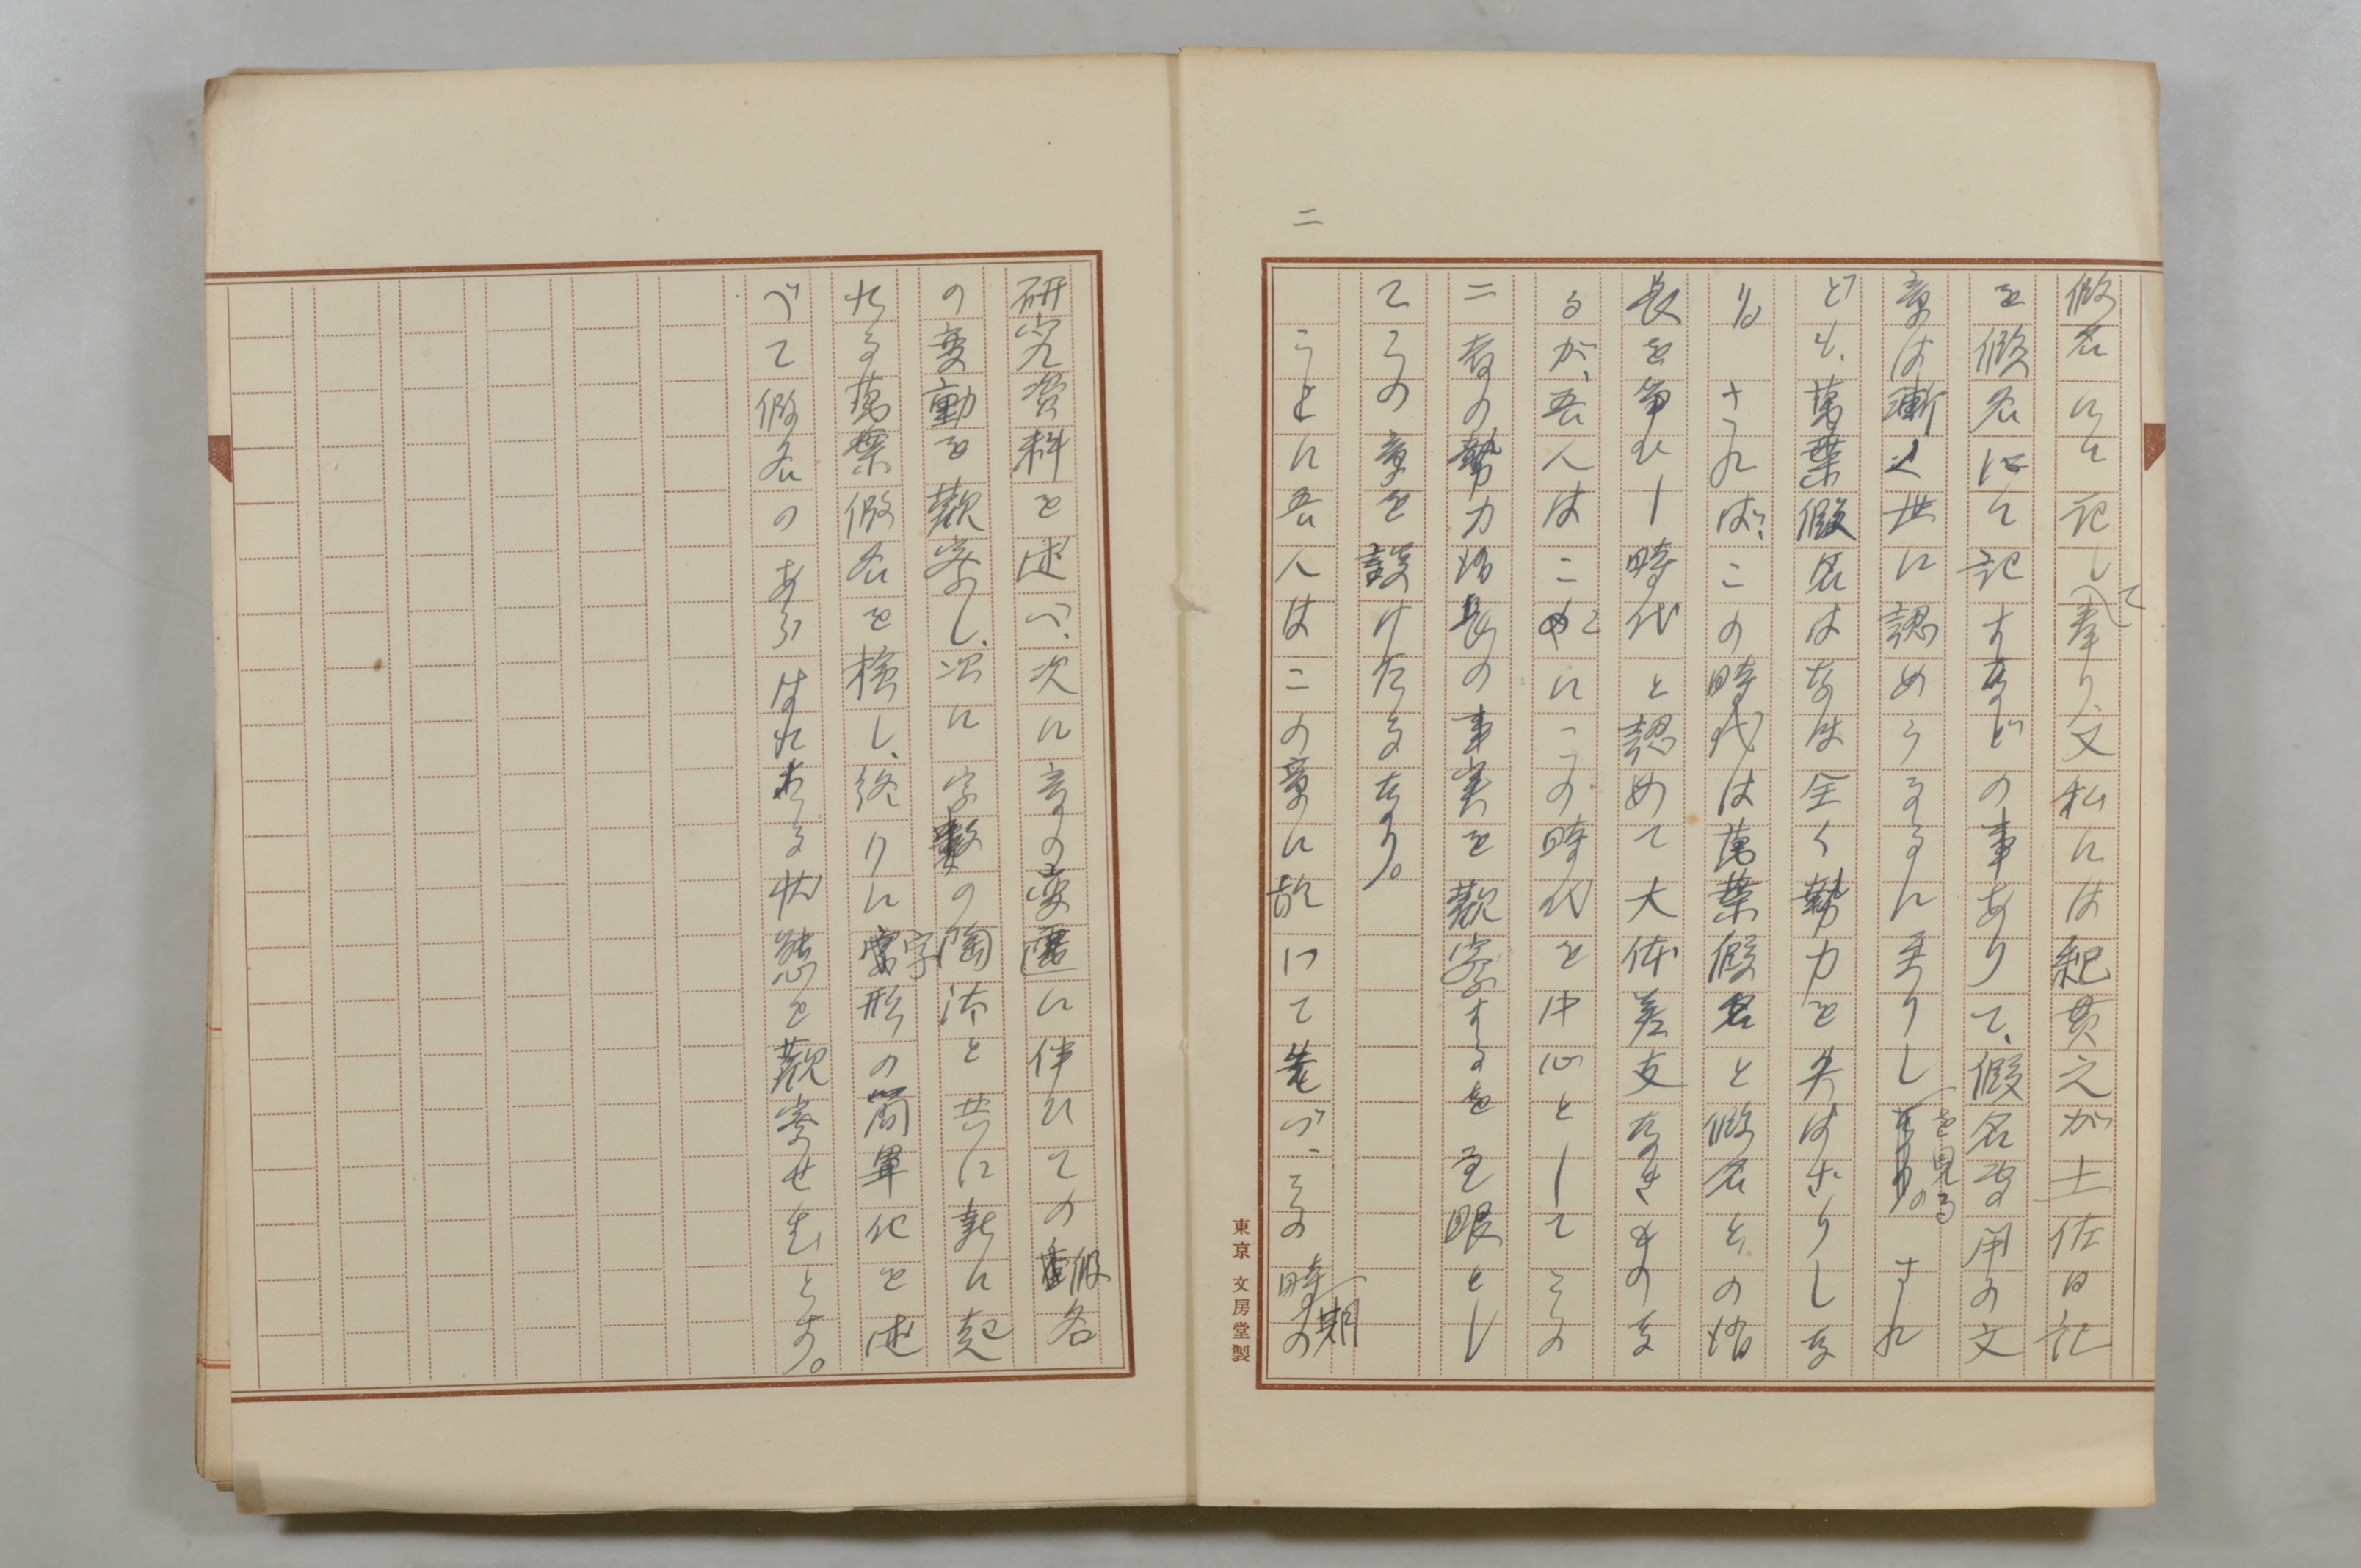 二
假名にて記して奉り、又私には紀貫之が土佐日記
を假名にて記すなどの事ありて、假名専用の文
章は漸く世に認めらるるに至りしを見る され
ども、萬葉假名はなほ全く勢力を失はざりしな
り。 されば、この時代は萬葉假名と假名との消
長を争ひし時代と認めて大体差支なきものな
るが、吾人はここにこの時代を中心としてその
二者の勢力消長の事実を観察するを主眼とし
てこの章を設けたるなり。
ことに吾人はこの章に於いて先づ、その時期の
研究資料を述べ、次に音の変遷に伴ひての假名
の変動を観察し、次に字数の陶汰と共に新に起
れる萬葉假名を検し、終りに字形の簡単化を述
べて假名のあらはれたる状態を観察せむとす。
東京 文房堂製